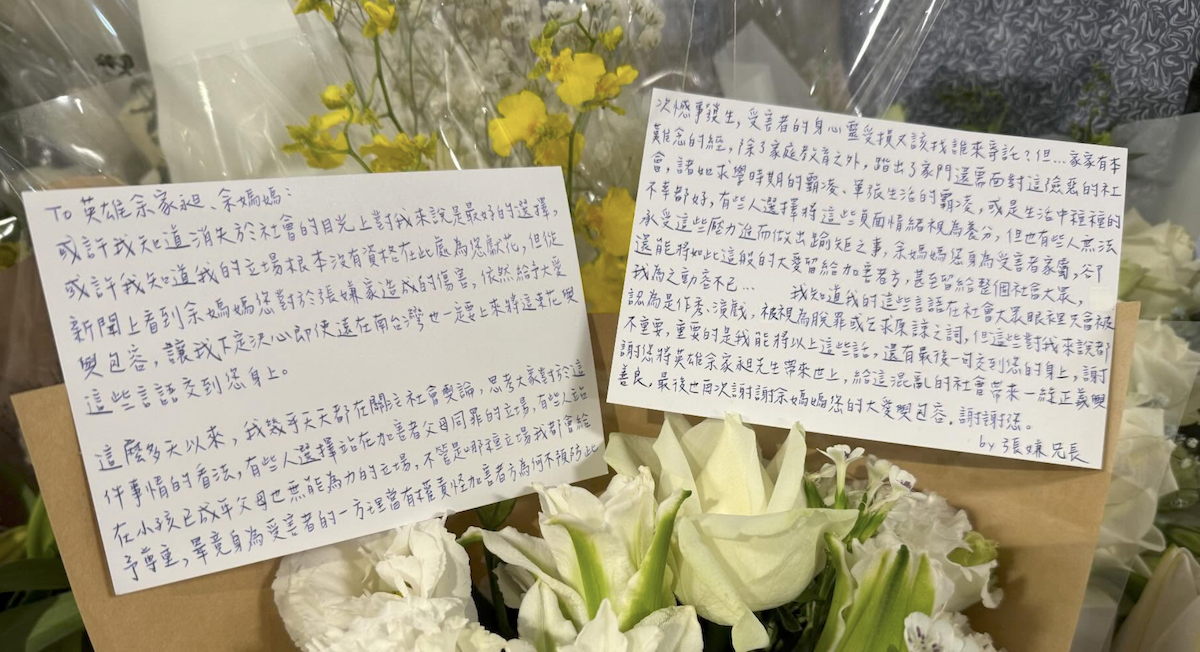 To 英雄余家昶、余媽媽：
或許我知道消失於社會的目光上對我來說是最好的選擇,
或許我知道我的立場根本沒有資格在此處為您獻花,但從
新聞上看到余媽媽您對於張嫌家造成的傷害,依然給予大愛
與包容,讓我下定決心即使遠在南台灣也一定要上來將這束花與
這些言語交到您身上。
這麼多天以來,我幾乎天天都在關注社會輿論,思考大衆對於這
件事情的看法,有些人選擇站在加害者父母同罪的立場,有些人站
在小孩已成年父母也無能為力的立場,不管是哪種立場我都會給
予尊重,畢竟身為受害者的一方理當有權責怪加害者方為何不預防此
次憾事發生,受害者的身心靈受損又該找誰來寄託?但...家家有本
難念的經,除了家庭教育之外,踏出了家門還需面對這險惡的社
會,諸如求學時期的霸凌、軍旅生活的霸凌,或是生活中種種的
不幸都好,有些人選擇將這些負面情緒視為養分,但也有些人無法
承受這些壓力進而做出踰矩之事,余媽媽您身為受害者家屬,卻
還能將如此這般的大愛留給加害者方,甚至留給整個社會大眾,
我為之動容不已... 我知道我的這些言語在社會大眾眼裡只會被
認為是作秀、演戲,被視為脫罪或乞求原諒之詞,但這些對我來說都
不重要,重要的是我能將以上這些話,還有最後一句交到您的身上,謝
謝您將英雄余家昶先生帶來世上,給這混亂的社會帶來一線正義與
善良,最後也再次謝謝余媽媽您的大愛與包容,謝謝您。
by 張嫌兄長